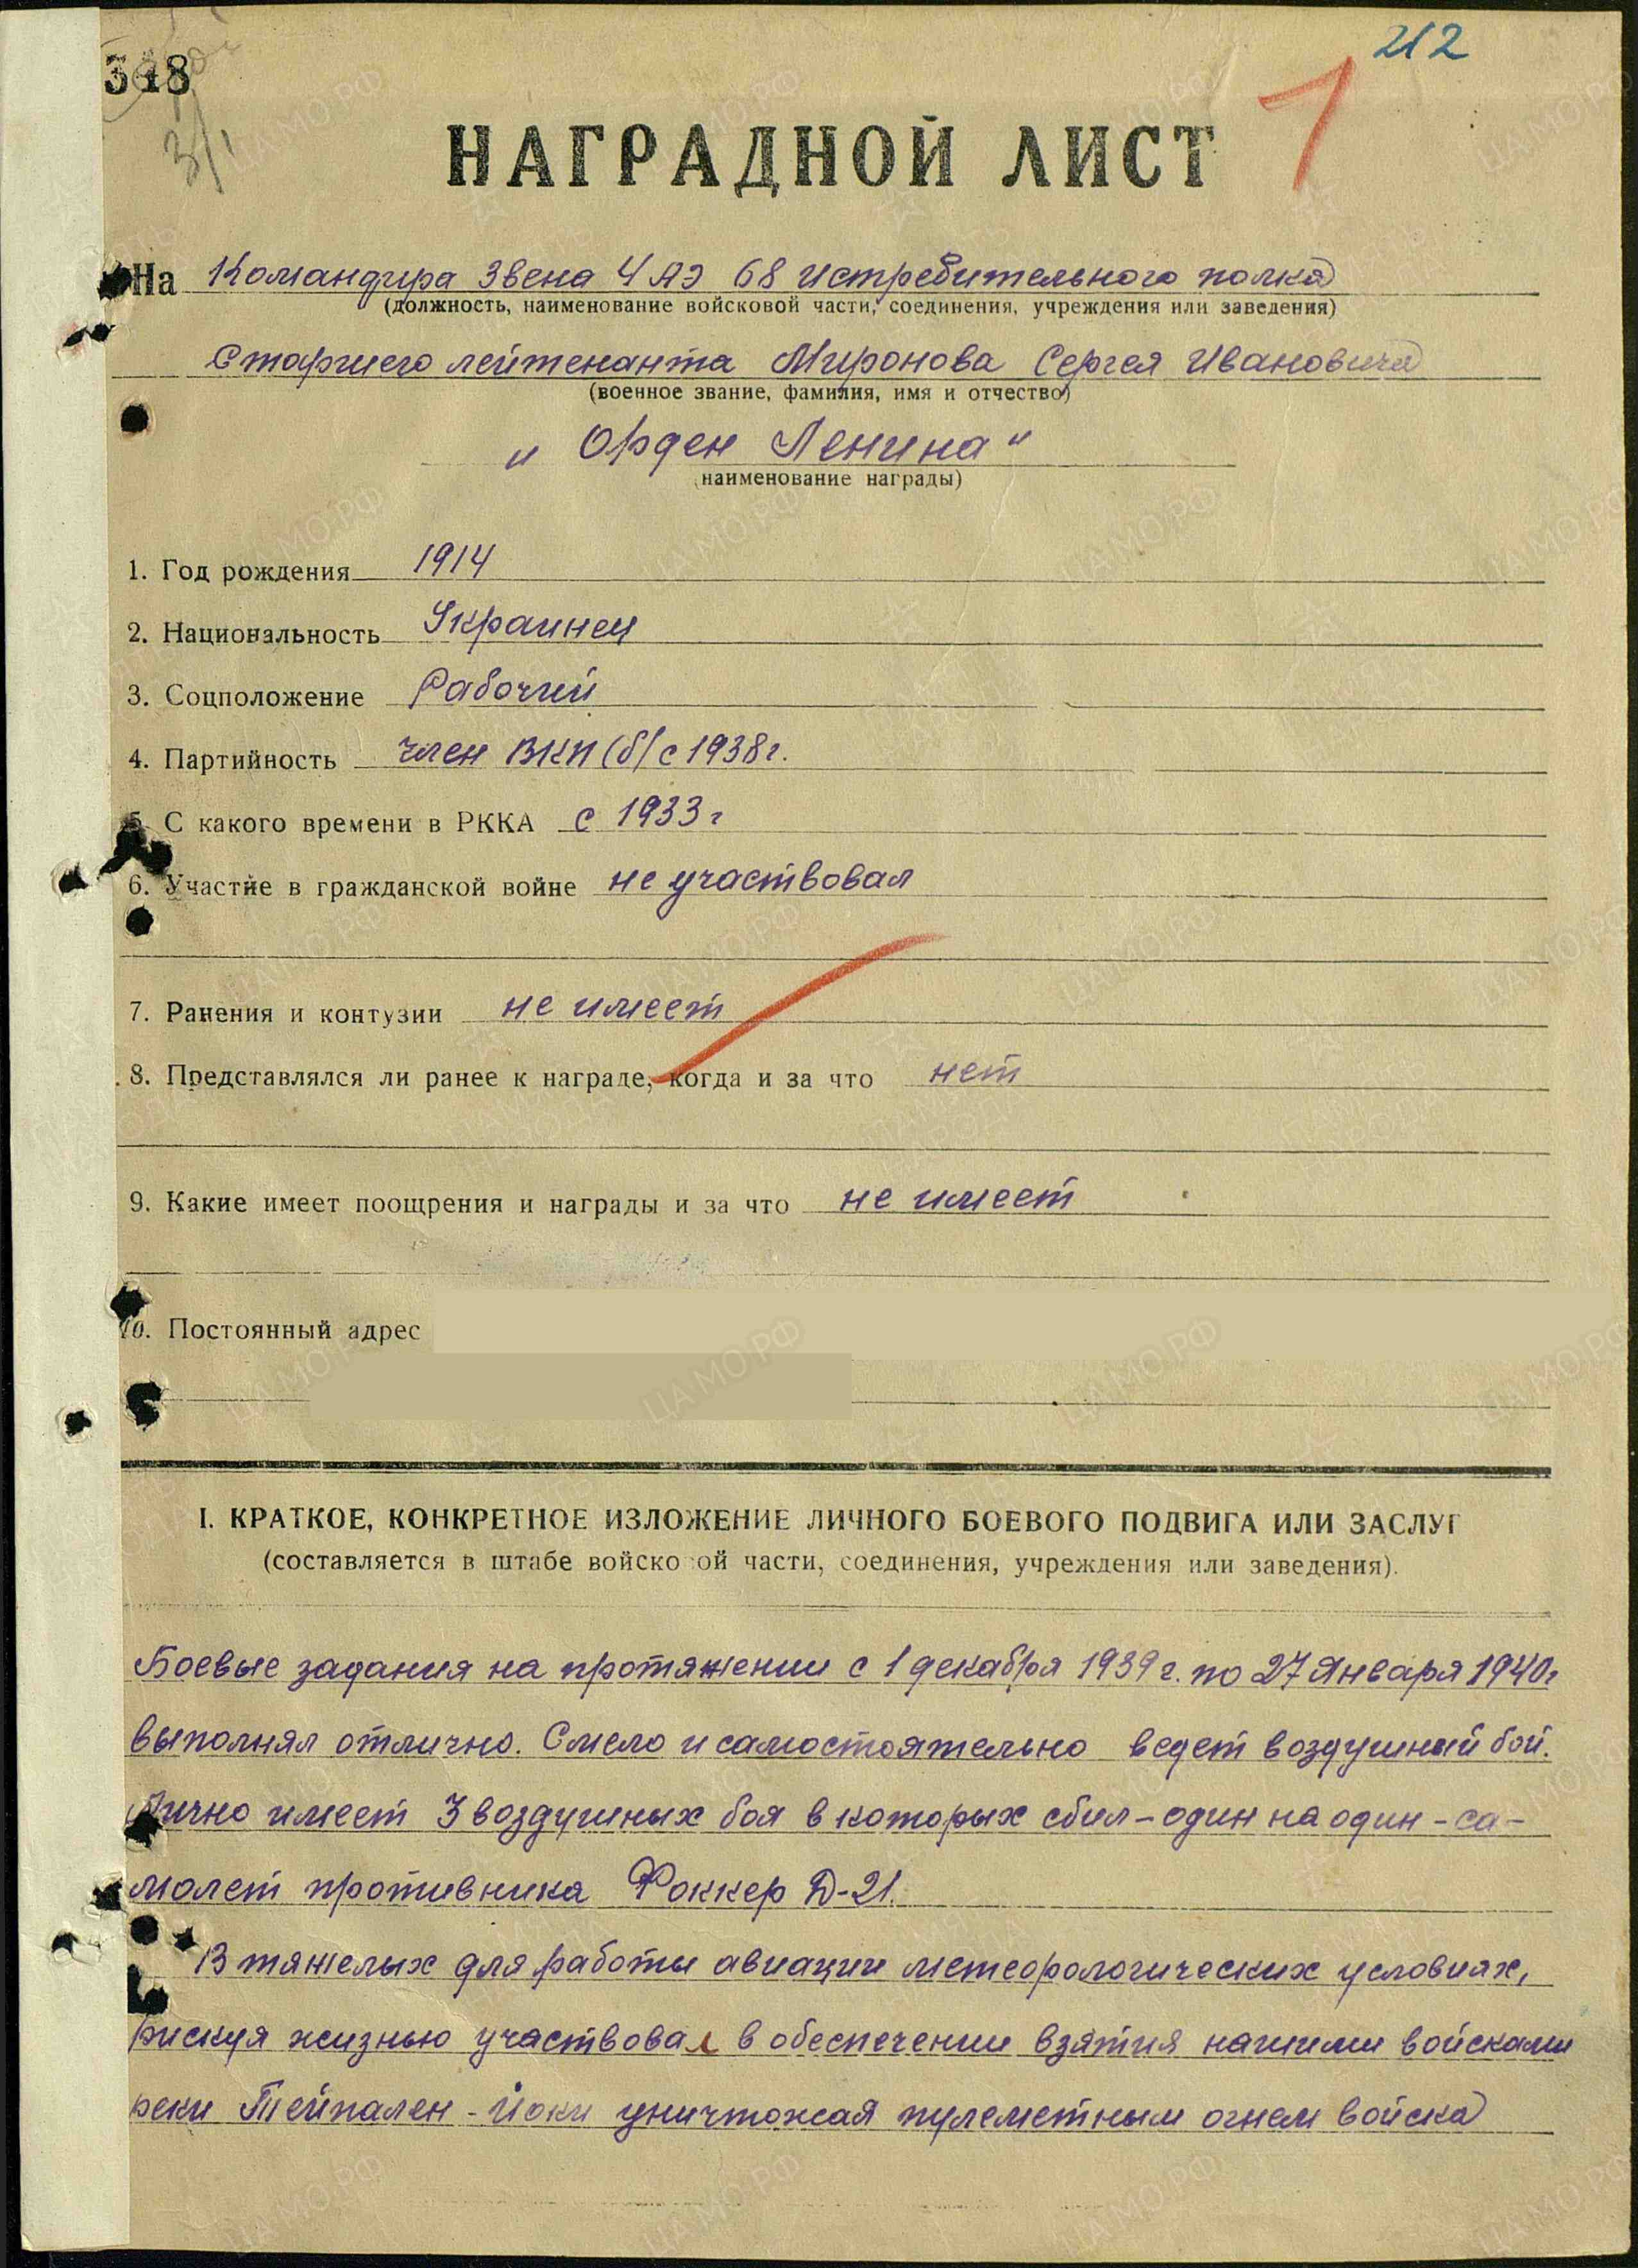 348
212
3/1
НАГРАДНОЙ ЛИСТ
На Командира Звена 4 АЭ 68 истребительного полка
(должность, наименование войсковой части, соединения, учреждения или заведения)
Старшего лейтенанта Миронова Сергея Ивановича
(военное звание, фамилия, имя и отчество)
„ Орден Ленина "
(наименование награды)
1. Год рождения 1914
2. Национальность Украинец
3. Соцположение Рабочий
4. Партийность член ВКП(б) с 1938г.
5. С какого времени в РККА с 1933 г
6. Участие в гражданской войне не участвовал
7. Ранения и контузии не имеет
8. Представлялся ли ранее к награде, когда и за что нет
9. Какие имеет поощрения и награды и за что не имеет
10. Постоянный адрес
I. КРАТКОЕ, КОНКРЕТНОЕ ИЗЛОЖЕНИЕ ЛИЧНОГО БОЕВОГО ПОДВИГА ИЛИ ЗАСЛУГ
(составляется в штабе войсковой части, соединения, учреждения или заведения).
Боевые задания на протяжении с 1 декабря 1939 г. по 27 Января 1940г
выполнял отлично. Смело и самостоятельно ведет воздушный бой.
Лично имеет 3 воздушных боя в которых сбил - один на один - са-
молет противника Фоккер Д-21.
В тяжелых для работы авиации метеорологических условиях,
рискуя жизнью участвовал в обеспечении взятия нашими войсками
реки Тейпален - Йоки уничтожая пулеметным огнем войска